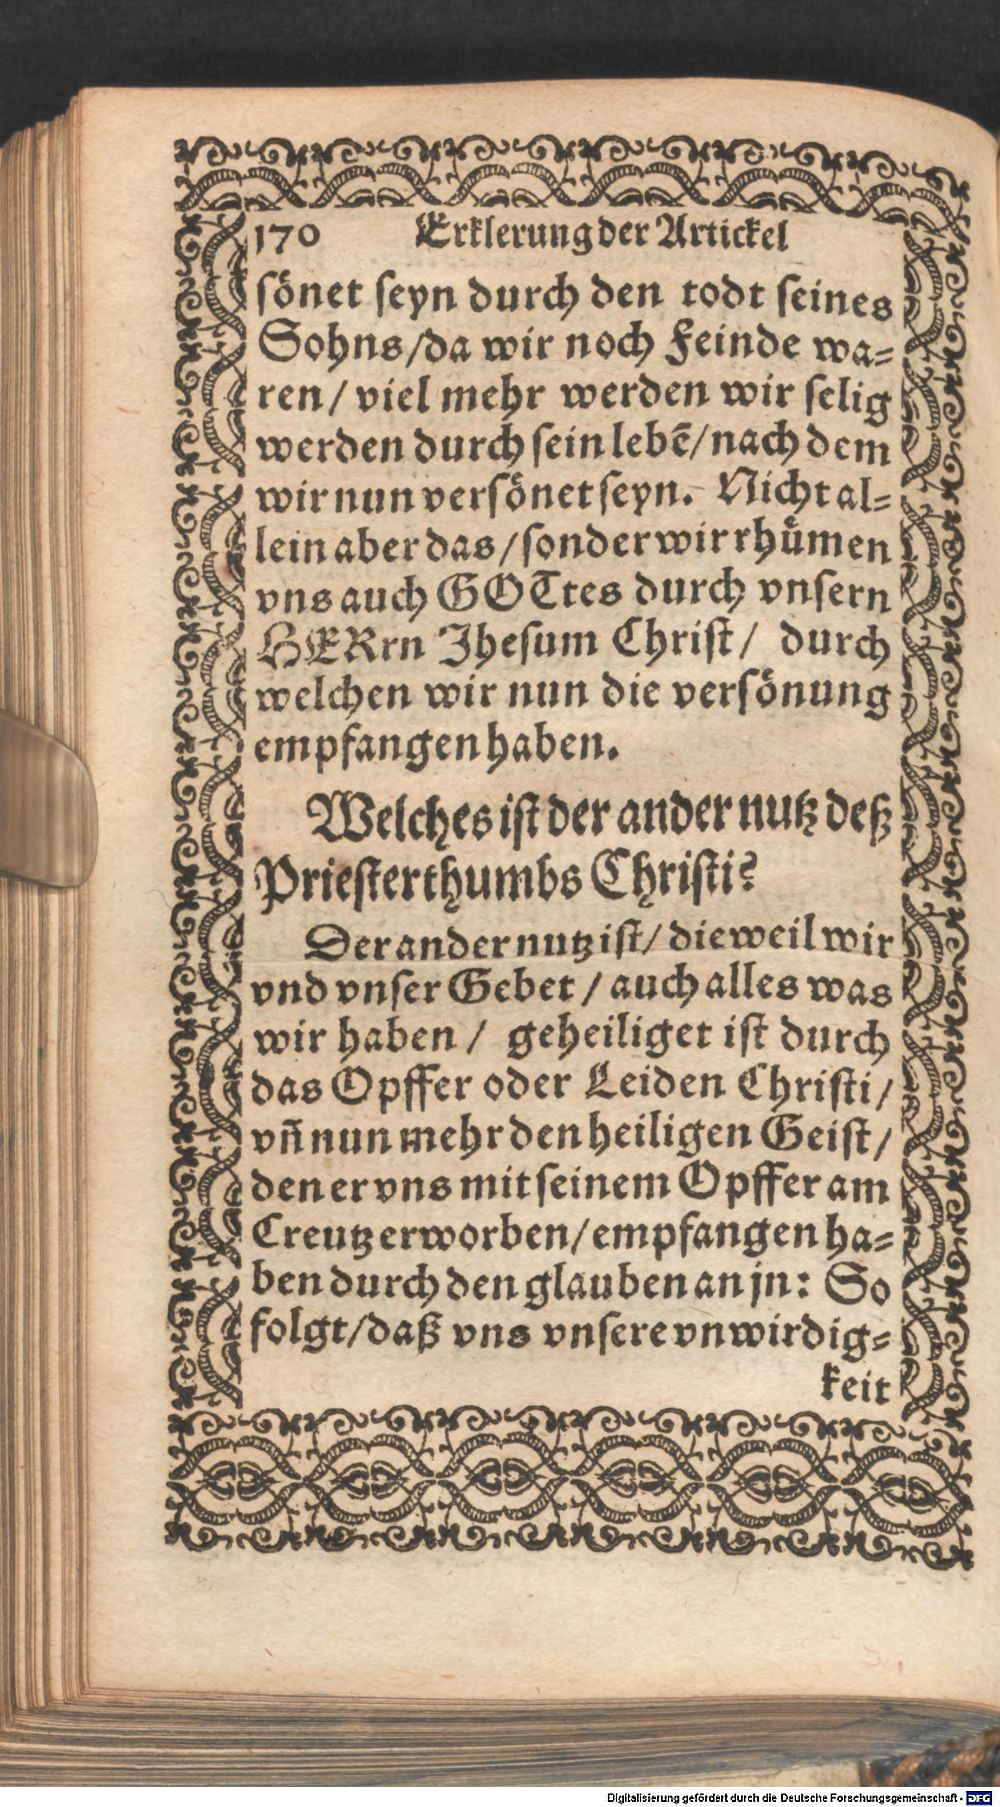 170 Erklerung der Artickel
sönet seyn durch den todt seines
Sohns/da wir noch Feinde wa-
ren/ viel mehr werden wir selig
werden durch sein lebẽ/nach dem
wir nun versönet seyn. Nicht al-
lein aber das/sonder wir rhümen
vns auch GOTtes durch vnsern
HERrn Jhesum Christ/ durch
welchen wir nun die versönung
empfangen haben.
Welches ist der ander nutz deß
Priesterthumbs Christi?
Der ander nutz ist/ dieweil wir
vnd vnser Gebet / auch alles was
wir haben / geheiliget ist durch
das Opffer oder Leiden Christi/
vñ nun mehr den heiligen Geist/
den er vns mit seinem Opffer am
Creutz erworben/empfangen ha-
ben durch den glauben an jn: So
folgt/daß vns vnsere vnwirdig-
keit
Digitalisierung gefördert durch die Deutsche Forschungsgemeinschaft - DFG